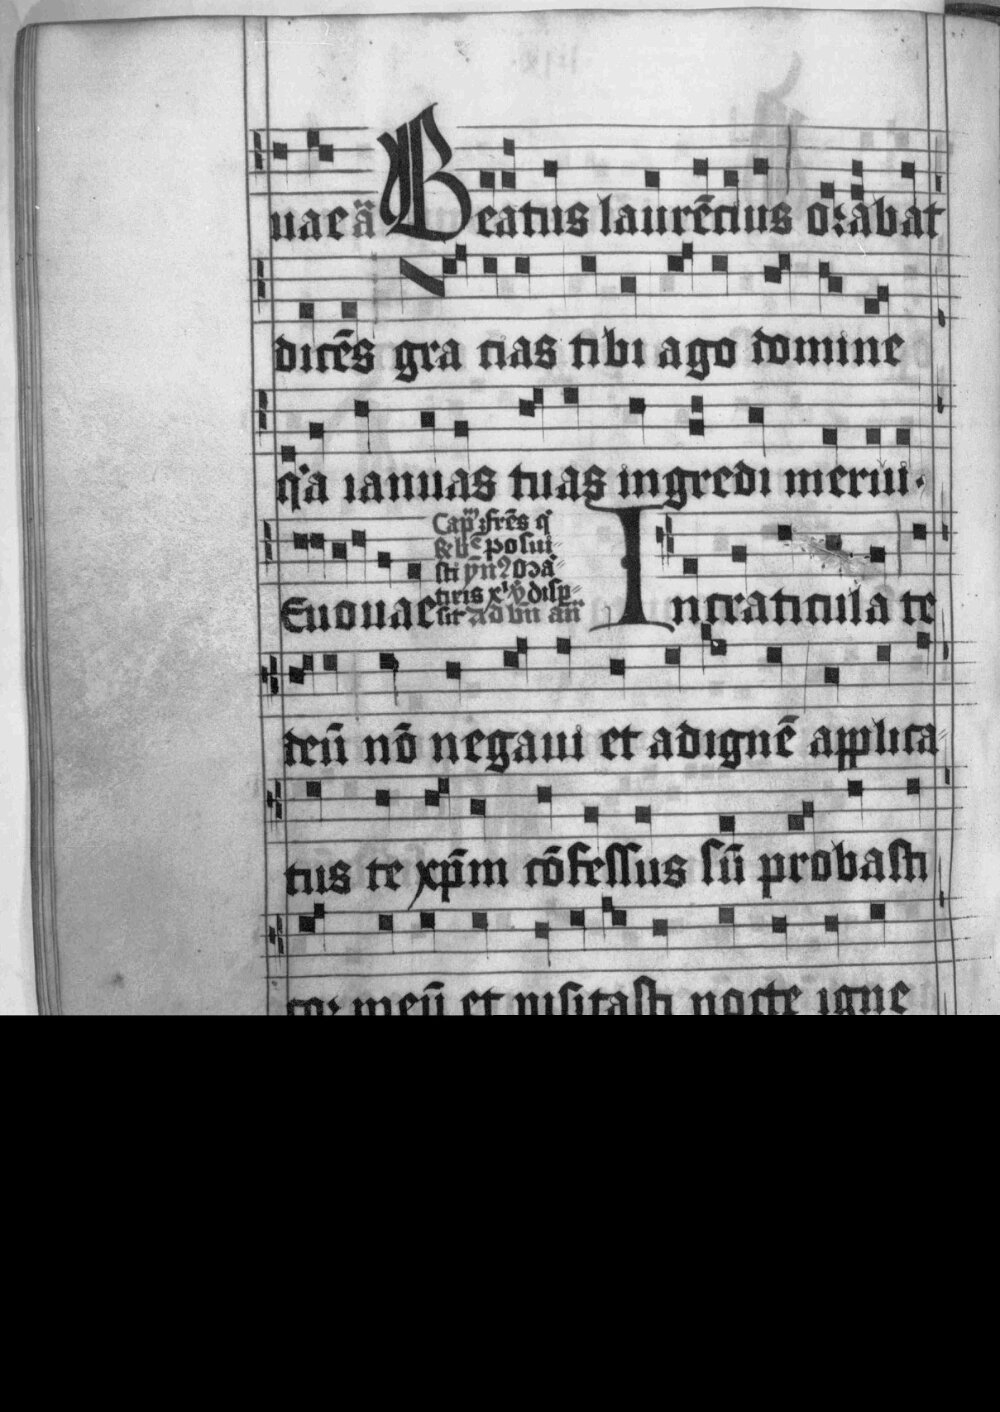 uae ā Beatus laurēcius orabat
dicēs gra cias tibi ago domine
q'a ianuas tuas ingredi merui.
Cap. frēs q'
posui
sti
tiris disp
sit ad bn an
Euouae In craticula te
deū nō negaui et ad ignē applica
tus te xp̄m cōfessus sū probasti
cor meū et uisitasti nocte igne